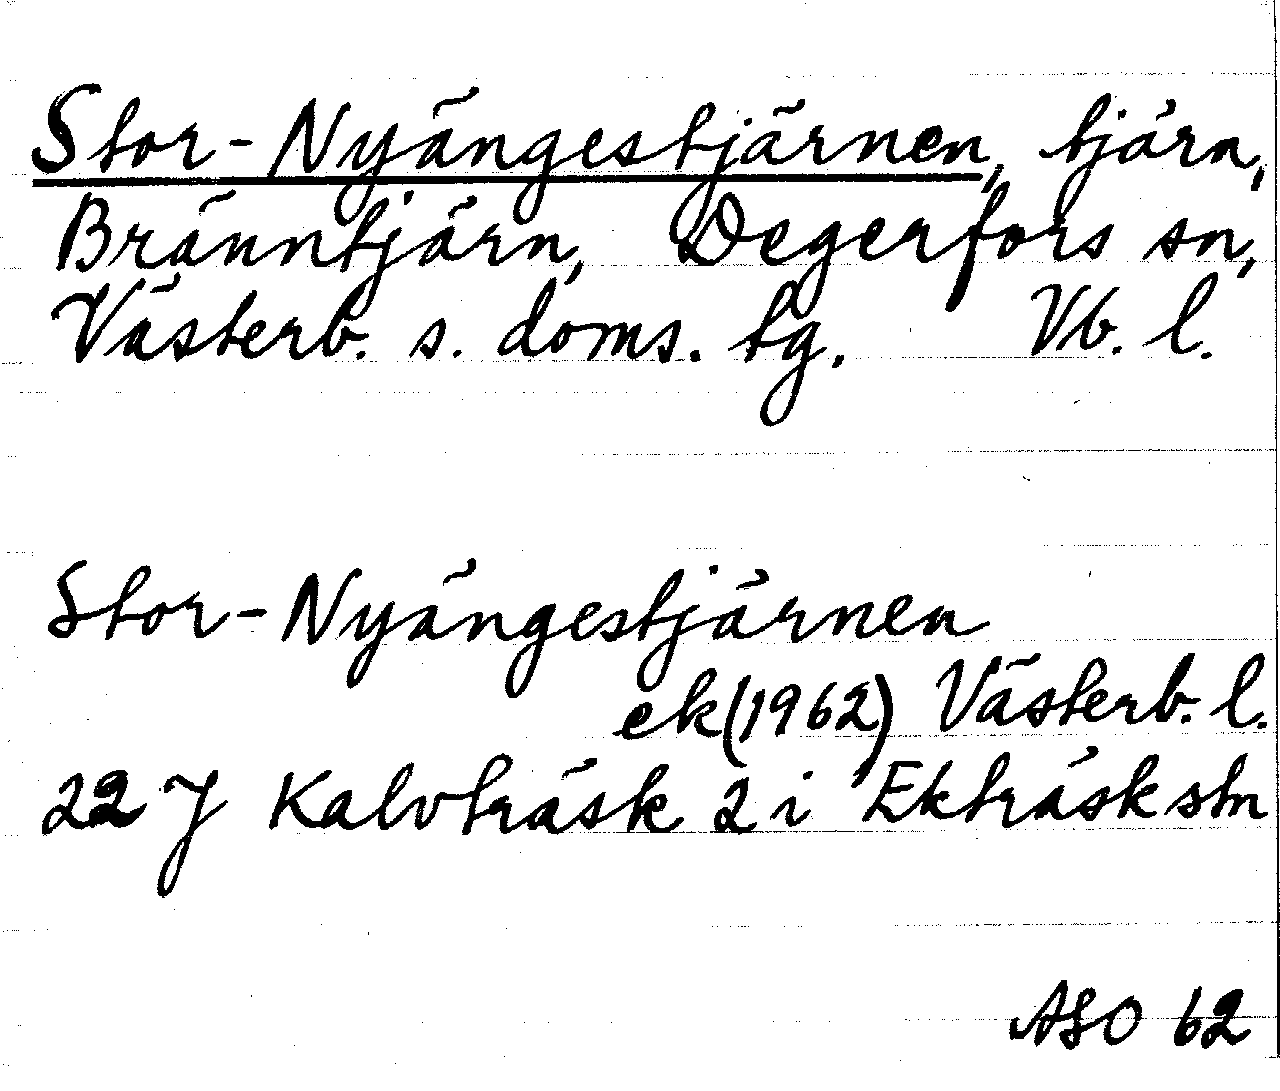 Stor-Nyängestjärnen, tjärn,
Bränntjärn, Degerfors sn,
Västerb. s. doms. tg. Vb. l.
Stor-Nyängestjärnen
ek(1962) Västerb. l.
22 J Kalvträsk 2 i Ekträsk stn
ASO 62